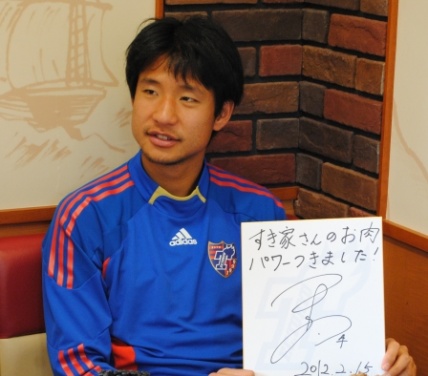 adidas
すき家さんのお肉
パワーつきました!
4
2012.2.15